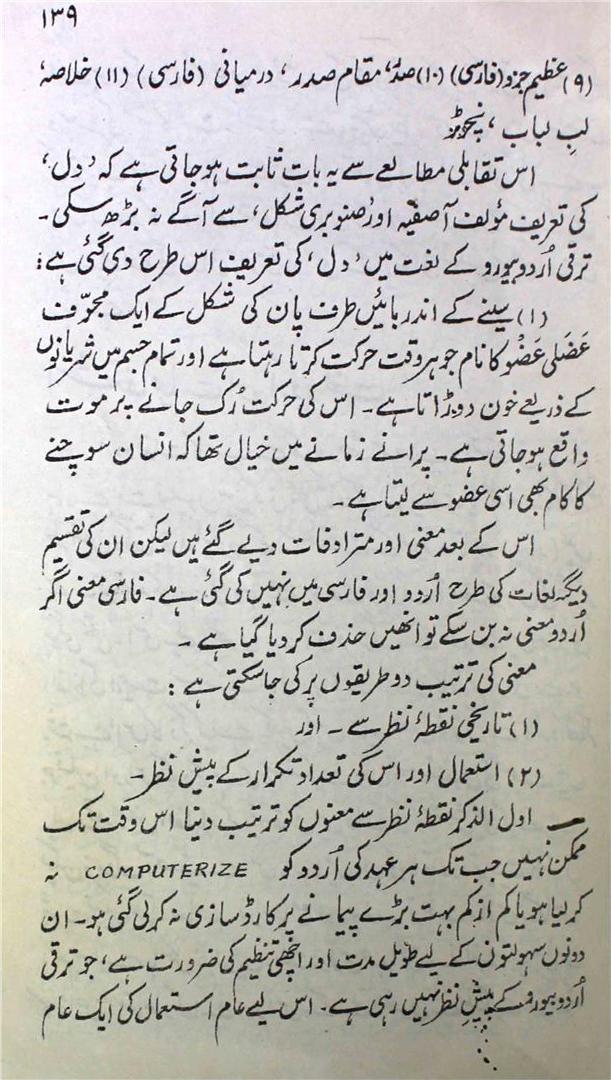 ۱۳۹
(۹) عظیم جزو (فارسی) (۱۰) صدر، مقام صدر، درمیانی (فارسی) (۱۱) خلاصہ،
لبِ لباب، نچوڑ
اس تقابلی مطالعے سے یہ بات ثابت ہو جاتی ہے کہ 'دل'،
کی تعریف مؤلف آصفیہ اور 'صنوبری شکل' سے آگے نہ بڑھ سکی۔
ترقی اُردو بیورو کے لغت میں 'دل' کی تعریف اس طرح دی گئی ہے:
(۱) سینے کے اندر بائیں طرف پان کی شکل کے ایک مجوّف
عَضَلی عَضْو کا نام جو ہر وقت حرکت کرتا رہتا ہے اور تمام جسم میں شریانوں
کے ذریعے خون دوڑاتا ہے۔ اس کی حرکت رُک جانے پر موت
واقع ہو جاتی ہے۔ پرانے زمانے میں خیال تھا کہ انسان سوچنے
کا کام بھی اسی عضو سے لیتا ہے۔
اس کے بعد معنی اور مترادفات دیے گئے ہیں لیکن ان کی تقسیم
دیگر لغات کی طرح اُردو اور فارسی میں نہیں کی گئی ہے۔ فارسی معنی اگر
اُردو معنی نہ بن سکے تو انھیں حذف کر دیا گیا ہے۔
معنی کی ترتیب دو طریقوں پر کی جا سکتی ہے:
(۱) تاریخی نقطۂ نظر سے۔ اور
(۲) استعمال اور اس کی تعداد تکرار کے پیش نظر۔
اول الذکر نقطۂ نظر سے معنوں کو ترتیب دینا اس وقت تک
ممکن نہیں جب تک ہر عہد کی اُردو کو COMPUTERIZE نہ
کر لیا ہو یا کم از کم بہت بڑے پیمانے پر کارڈ سازی نہ کر لی گئی ہو۔ ان
دونوں سہولتوں کے لیے طویل مدت اور اچھی تنظیم کی ضرورت ہے، جو ترقی
اُردو بیورو کے پیشِ نظر نہیں رہی ہے۔ اس لیے عام استعمال کی ایک عام